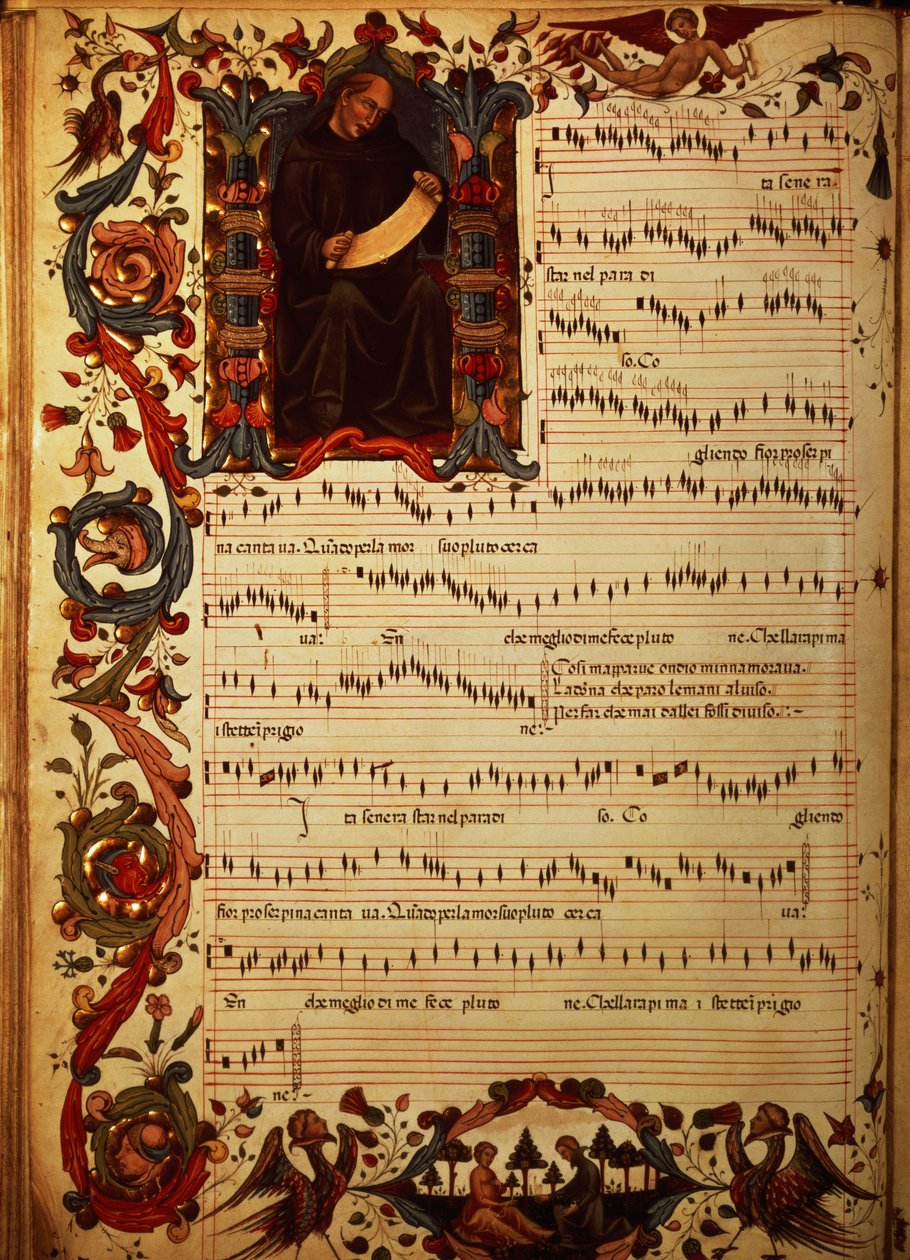 I ta sene ra
star nel para di
so. Co
gliendo fior proserpi
na canta va. Qua͂do per la mor suo pluto cerca
va: En che meglio di me fece pluto ne. Ch ella rapi ma
i stette i͂ prigio ne:~
Cosi ma parue ondio minnamoraua.
La do͂na che paro le mani al uiso.
Per far che mai da llei fossi diuiso. :~
I ta sene ra star nel paradi so. Co gliendo
fior proserpina canta va. Qua͂do per la mor suo pluto cerca va:
En che meglio di me fece pluto ne. Ch ella rapi ma i stette i͂ prigio
ne:~